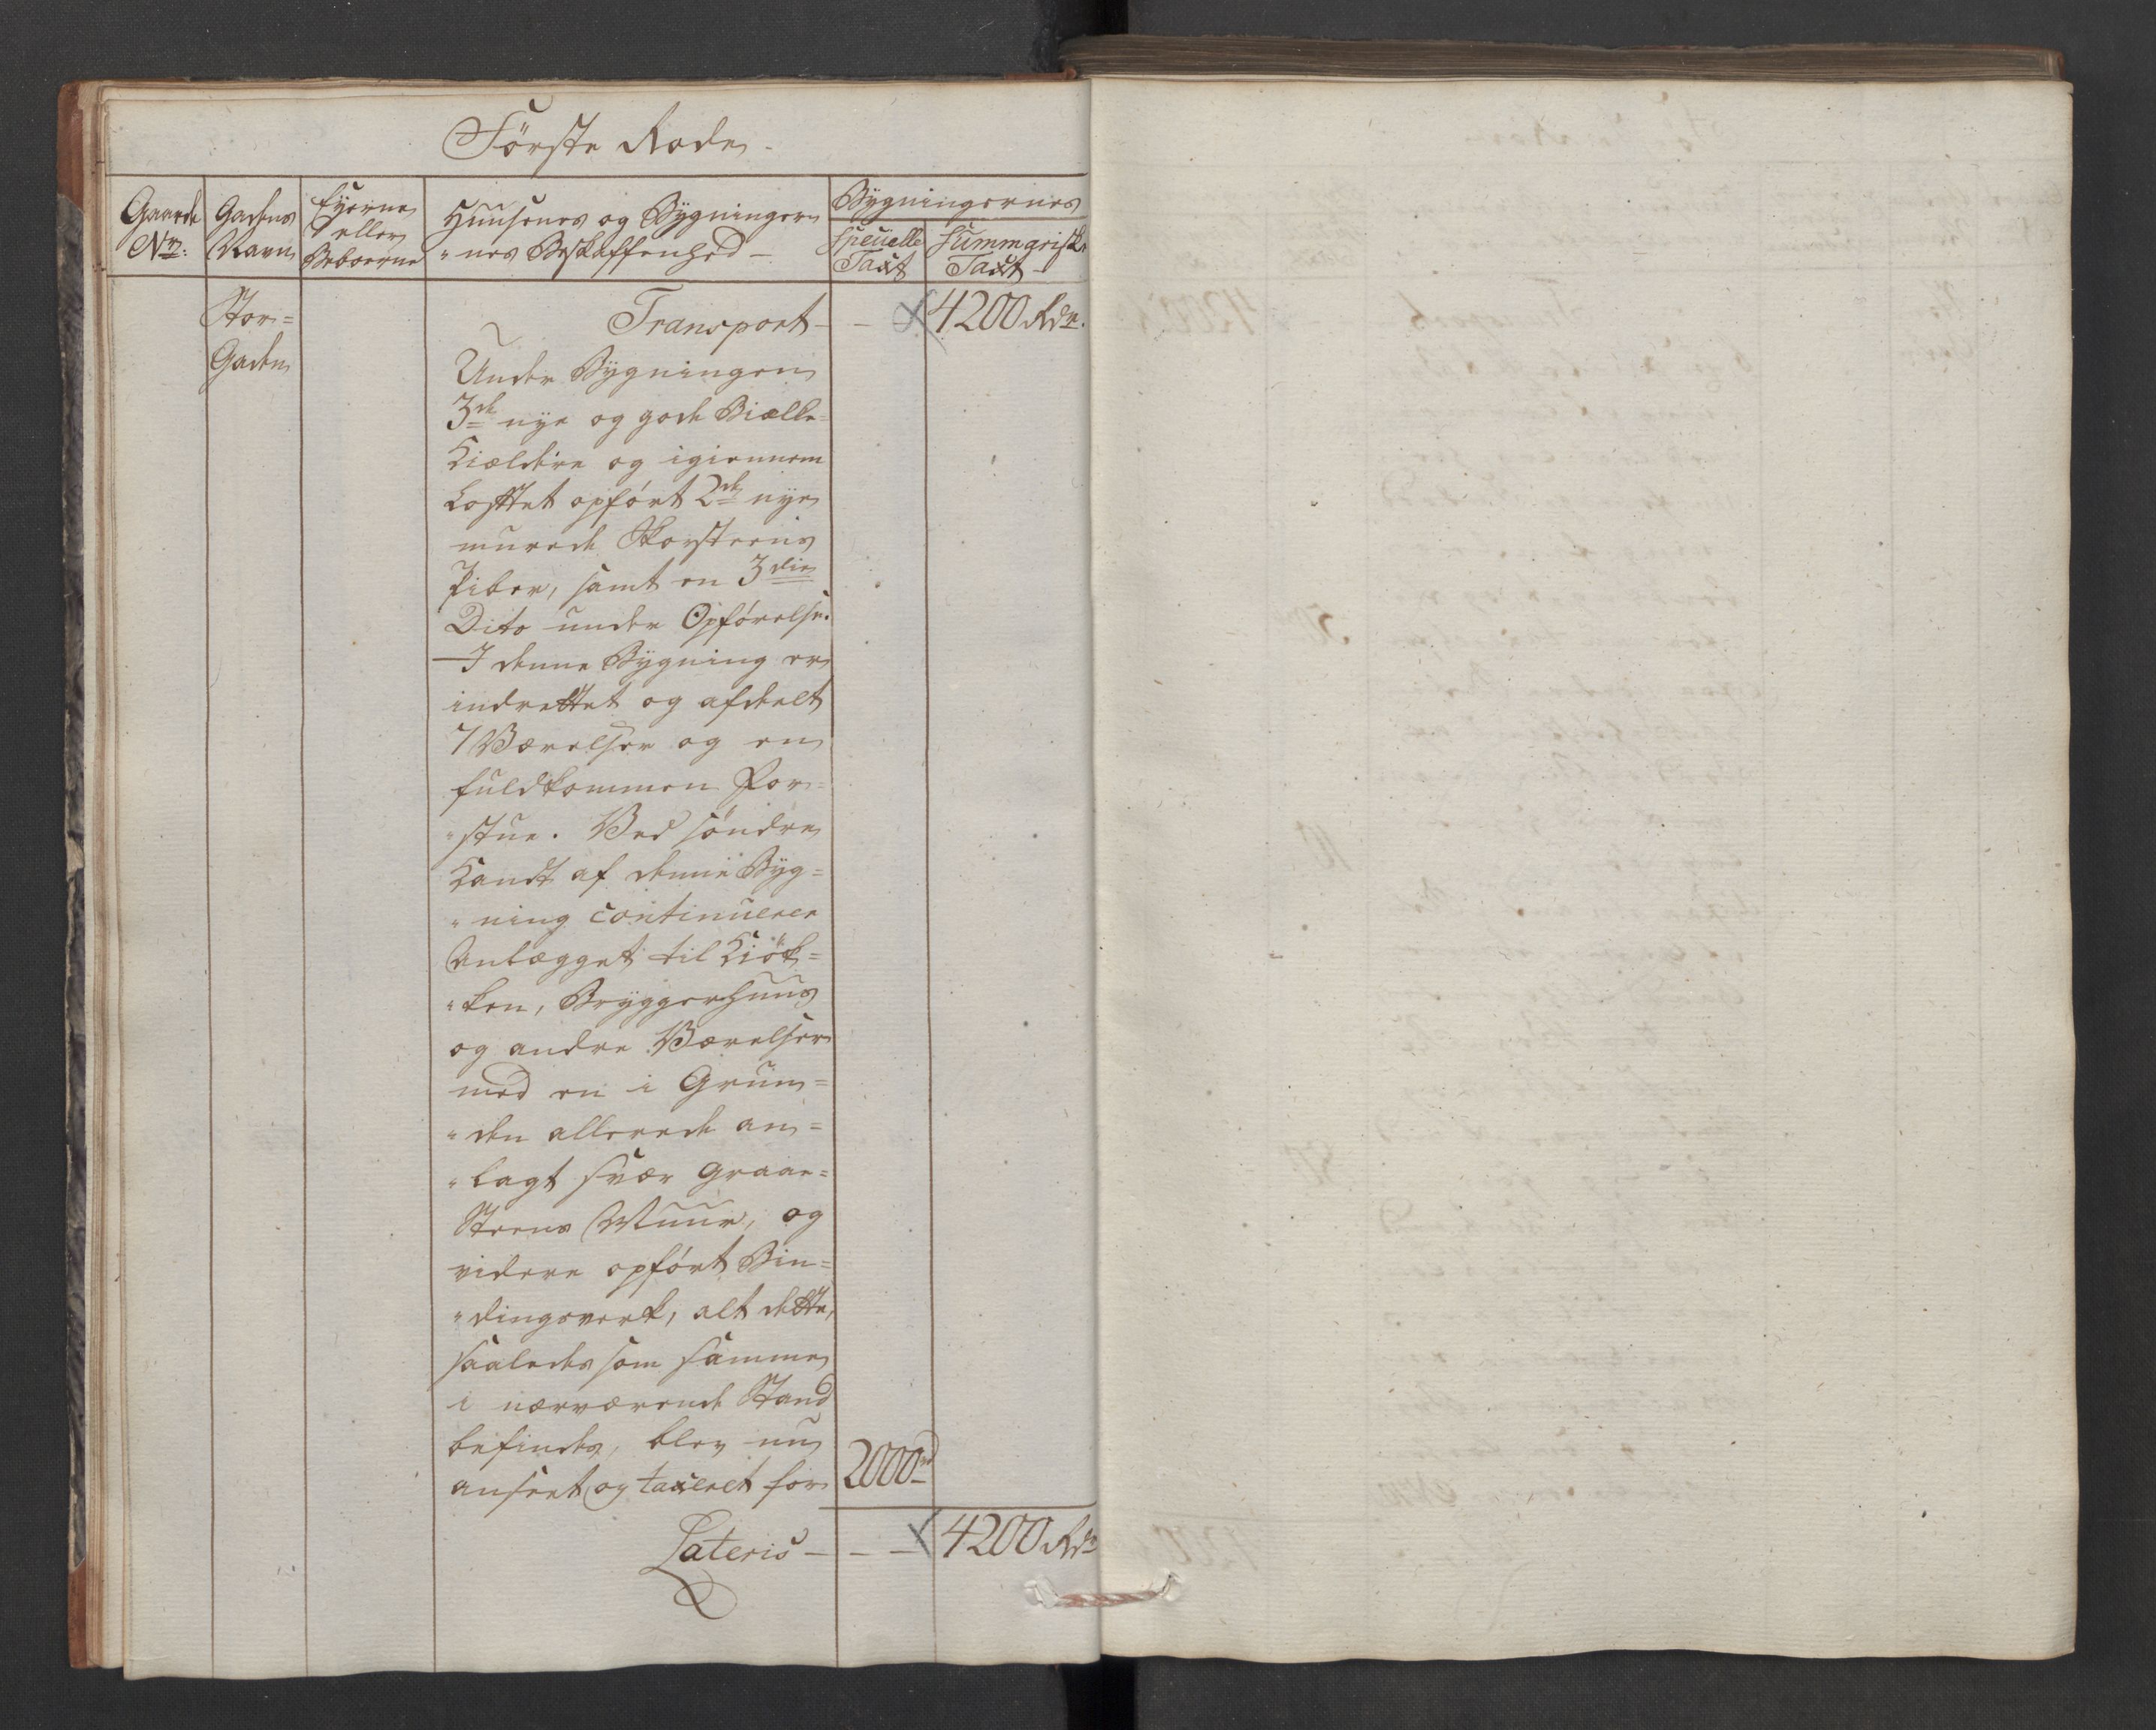 Förste Rode
Gaarde Gadens Eyerne Huusenes og Bygninger Bygningernes
Nr: Navn eller Beboerne "nes Beskaffenhed Speuelle Taxt Summariske Taxt
Stor= Transport - - 4200 Rdr.
Gaden
Under Bygningen
3de nye og gode Biælke=
Kieldere og igiennem
Lofttet opført 2de nye
murede Skorsteens
Piber, samt en 3die
Dito under Opførelse.
I denne Bygning er
indrettet og afdeelt
7 Værelser og en
fuldkommen For=
"stue. Ved söndre
Kandt af denne Byg=
"ning continuerer
Anlægget til Kiök=
"ken, Bryggerhuus
og andre Værelser
med en i Grun=
"den allerede an=
"lagt svær Graae=
Steens Muur, og
videre opført Bin=
"dingsverk, alt dette,
saaledes som samme
i nærværende Stand
befindes, blev nu
anseet og taxeret for 2000rd
Lateris - - - 4200 Rdr